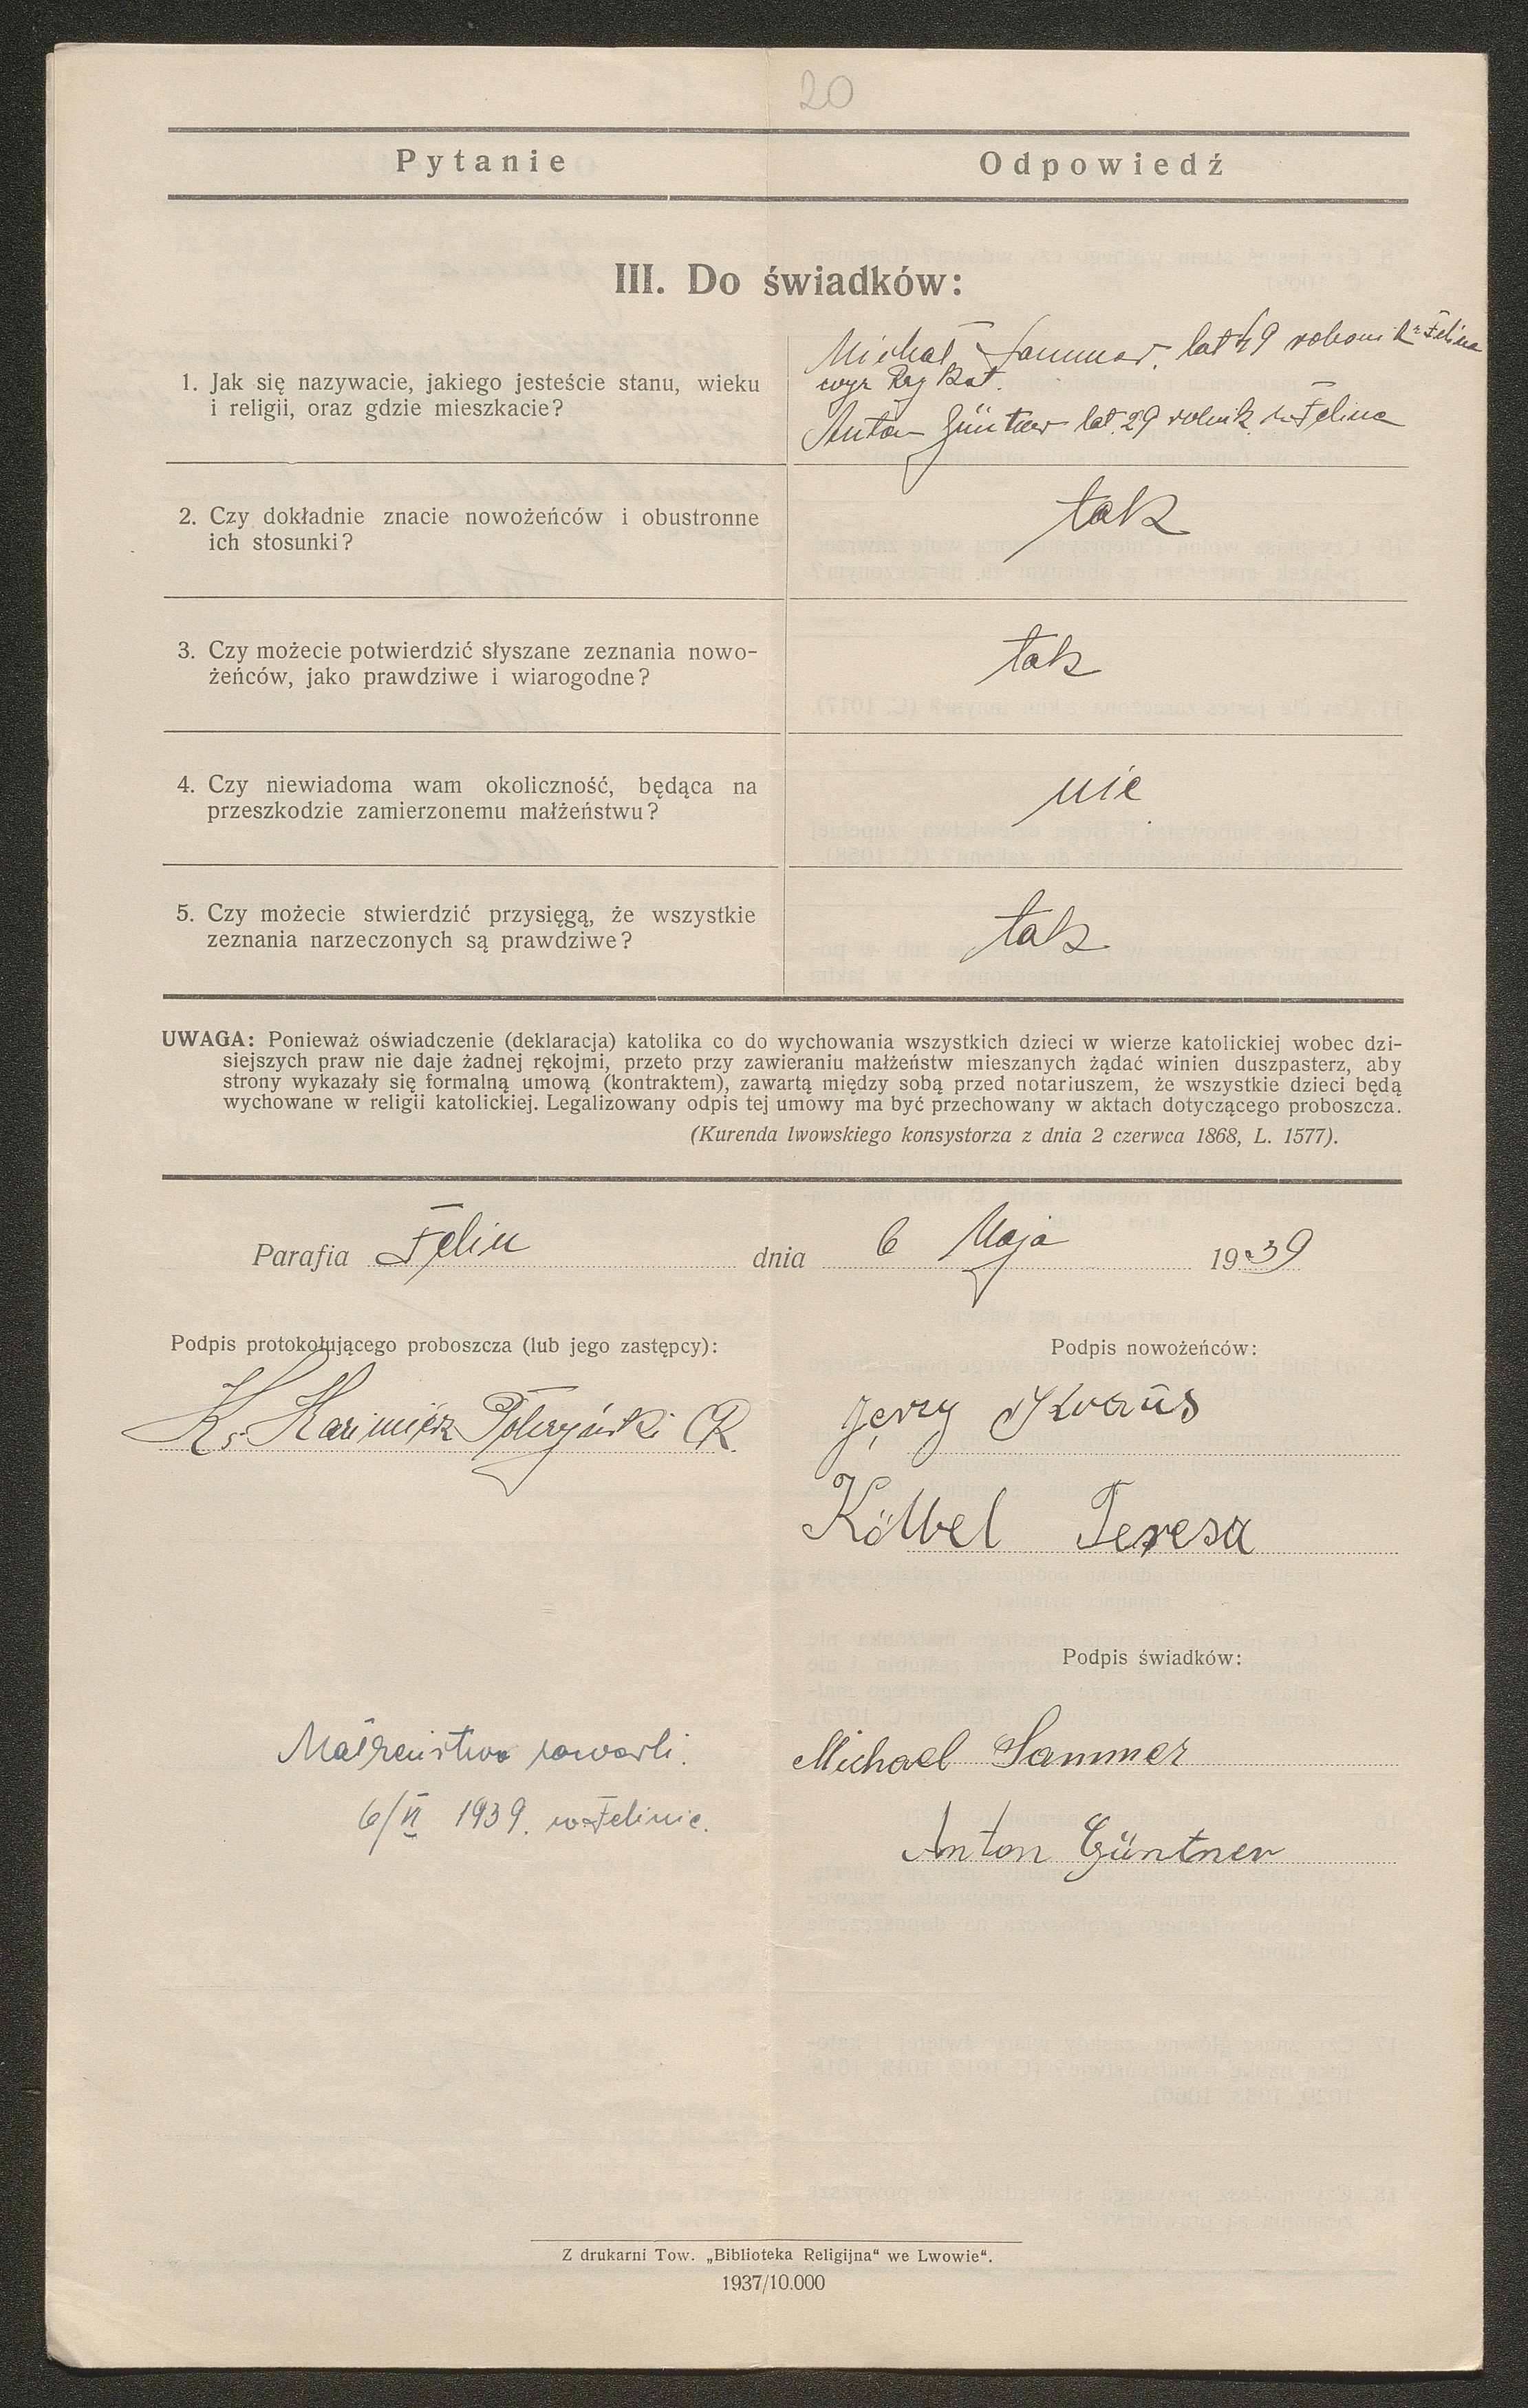 20
Pytanie Odpowiedź
III. Do świadków:
1. Jak się nazywacie, jakiego jesteście stanu, wieku
i religii, oraz gdzie mieszkacie?
Michał Sammer, lat 49 z Felina
wyz Rzy Kat.
Anton Güntner lat 29 rolnik z Felina
2. Czy dokładnie znacie nowożeńców i obustronne
ich stosunki?
tak
3. Czy możecie potwierdzić słyszane zeznania nowo-
żeńców, jako prawdziwe i wiarogodne?
tak
4. Czy niewiadoma wam okoliczność, będąca na
przeszkodzie zamierzonemu małżeństwu?
nie
5. Czy możecie stwierdzić przysięgą, że wszystkie
zeznania narzeczonych są prawdziwe?
tak
UWAGA: Ponieważ oświadczenie (deklaracja) katolika co do wychowania wszystkich dzieci w wierze katolickiej wobec dzi-
siejszych praw nie daje żadnej rękojmi, przeto przy zawieraniu małżeństw mieszanych żądać winien duszpasterz, aby
strony wykazały się formalną umową (kontraktem), zawartą między sobą przed notariuszem, że wszystkie dzieci będą
wychowane w religii katolickiej. Legalizowany odpis tej umowy ma być przechowany w aktach dotyczącego proboszcza.
(Kurenda lwowskiego konsystorza z dnia 2 czerwca 1868, L. 1577).
Parafia Felin dnia 6 Maja 1939
Podpis protokołującego proboszcza (lub jego zastępcy):
Ks. Kazimierz CR.
Podpis nowożeńców:
Jerzy Kraus
Kölbel Teresa
Podpis świadków:
Michael Sammer
Anton Güntner
Małżeństwo zawarli.
6/VI 1939. w Felinie.
Z drukarni Tow. „Biblioteka Religijna“ we Lwowie“.
1937/10.000